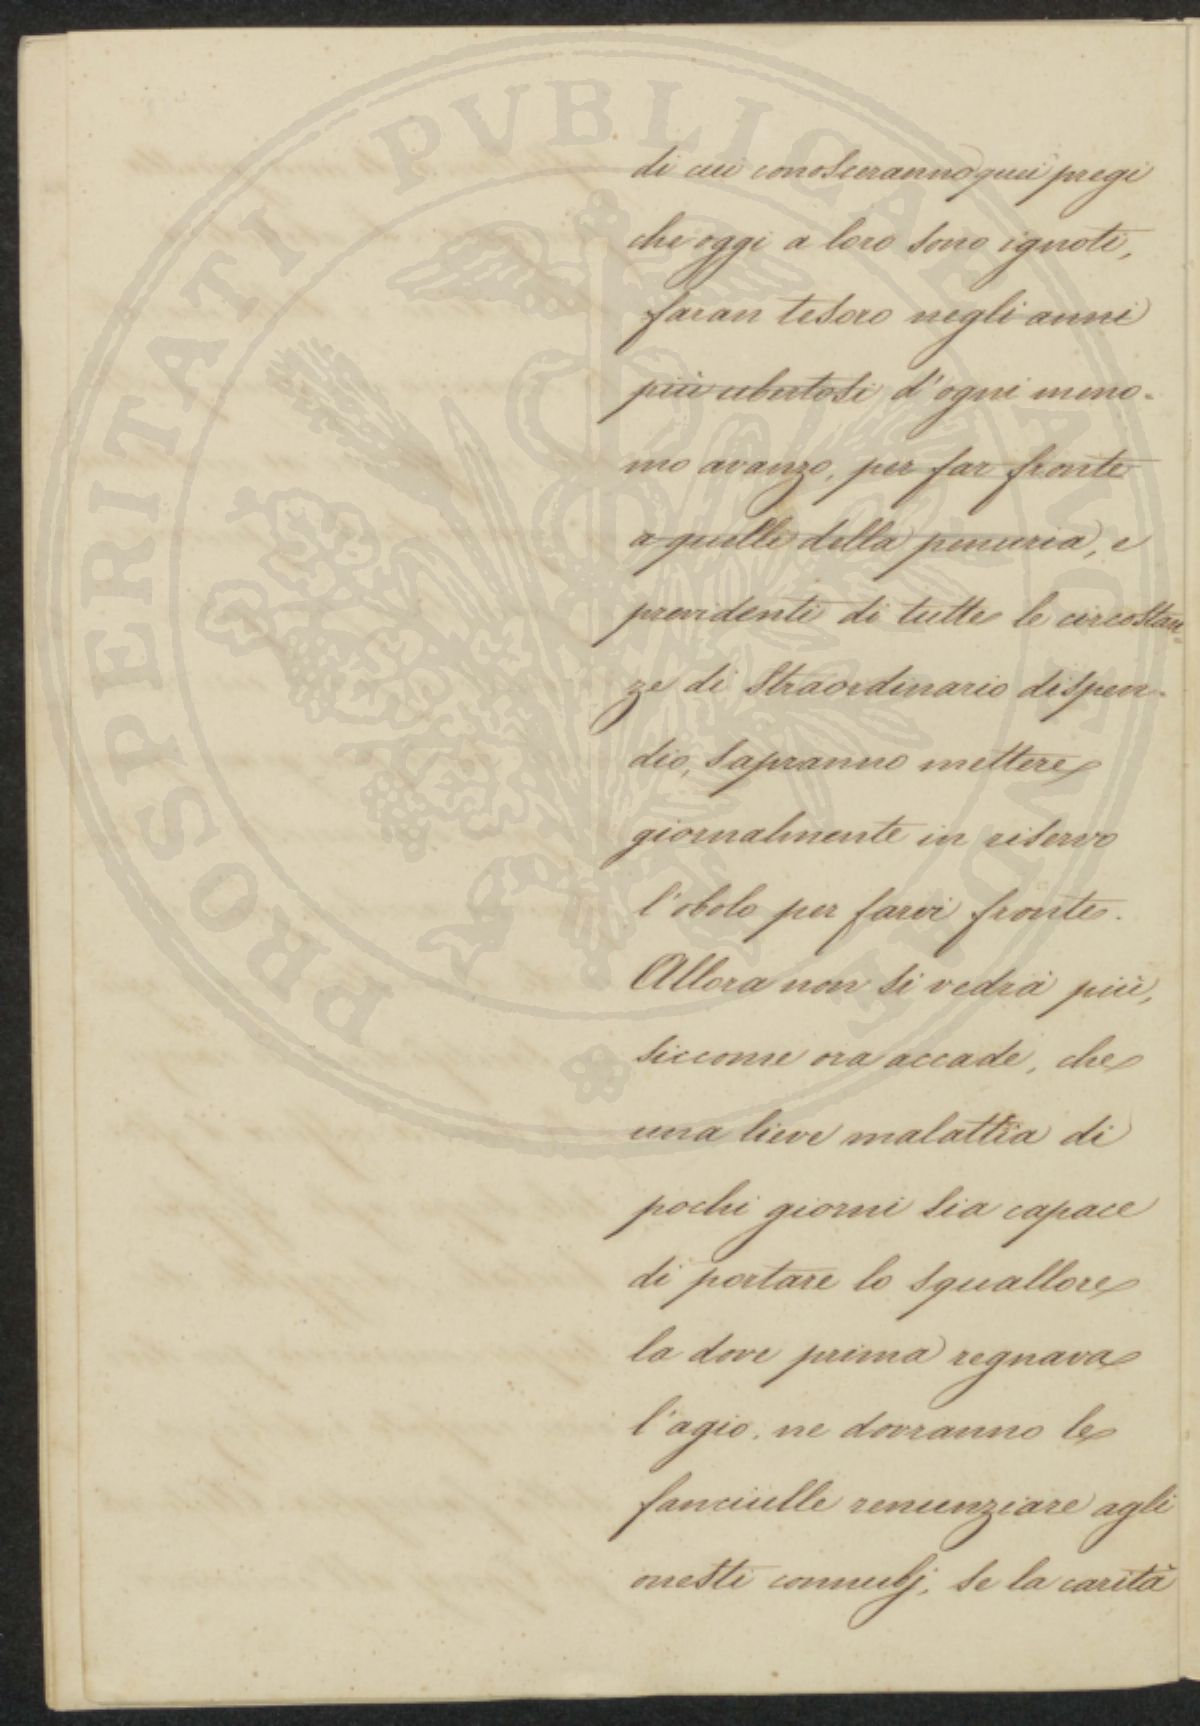 di cui conosceranno quei pregi
che oggi a loro sono ignoti,
faran tesoro negli anni
più ubertosi d'ogni meno-
mo avanzo, per far fronte
a quelli della penuria, e
previdenti di tutte le circostan-
ze di straordinario dispen-
dio, sapranno mettere
giornalmente in riservo
l'obolo per farvi fronte.
Allora non si vedrà più,
siccome ora accade, che
una lieve malattia di
pochi giorni sia capace
di portare lo squallore
la dove prima regnava
l'agio, ne dovranno le
fanciulle renunziare agli
onesti connubj, se la carità
PROSPERITATI PVBLICAE AVGENDAE